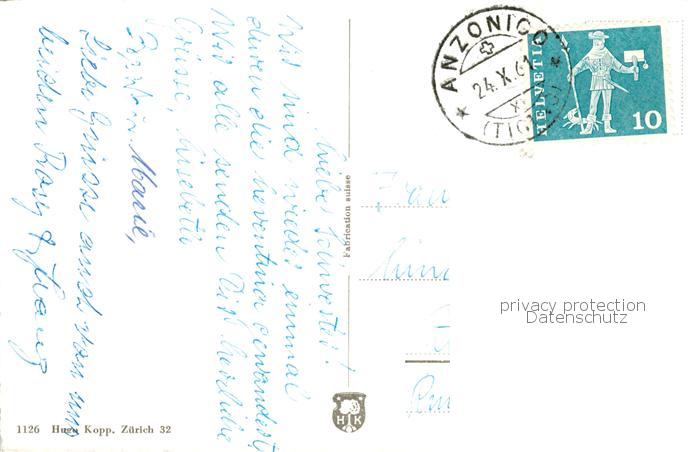 Liebe Schwester!
Wir sind wieder einmal
durch die Leventina gewandert
Wir alle senden Dir herzliche
Grüsse, Lisebeth
Marie,
Liebe Grüsse auch von uns
beiden Rosy & Franz
Fabrication suisse
1126 Hugo Kopp, Zürich 32
H K
ANZONICO
24.X.61
(TICINO)
HELVETIA
10
Frau
privacy protection
Datenschutz